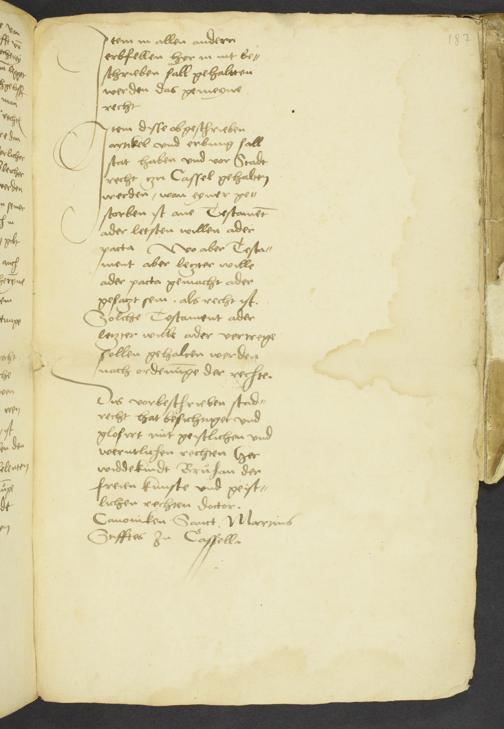 187
Item in allen andern
erbfellen hyr in nit be¬
schrieben sall gehalten
werden das gemeyne
recht
Item disse obgeschrieben
artikel und erbung sall
stat haben und vor Stadt
recht zu Cassel gehalten
werden, wan eyner ge¬
storben ist ane Testament
ader letsten willen ader
pacta Wo aber Testa¬
ment aber letzter wille
ader pacta gemacht ader
gesatzt sein, als recht ist.
Solche Testament ader
letzter wille ader vertrege
sollen gehalten werden
nach ordenunge der rechte.
Dis vorbeschrieben stad¬
recht hat besichtiget und
glosirt mit geistlichen und
werntlichen rechten Her
widdekindt der
freien kunste und geist¬
lichen rechten doctor.
Canoniken Sanct Martins
Stifftes zu Cassell.